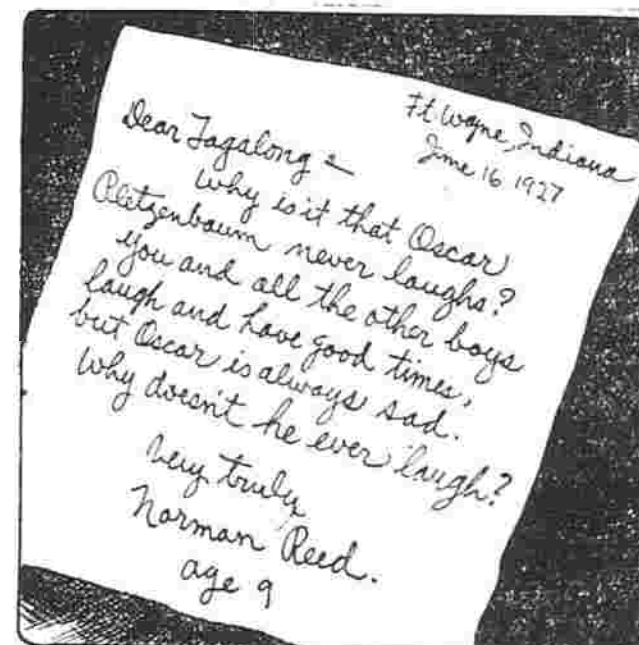 Ft. Wayne, Indiana
June 16 1927
Dear Tagalong =
Why is it that Oscar
Pletzenbaum never laughs?
You and all the other boys
laugh and have good times,
but Oscar is always sad.
Why doesn't he ever laugh?
Very truly,
Norman Reed.
age 9